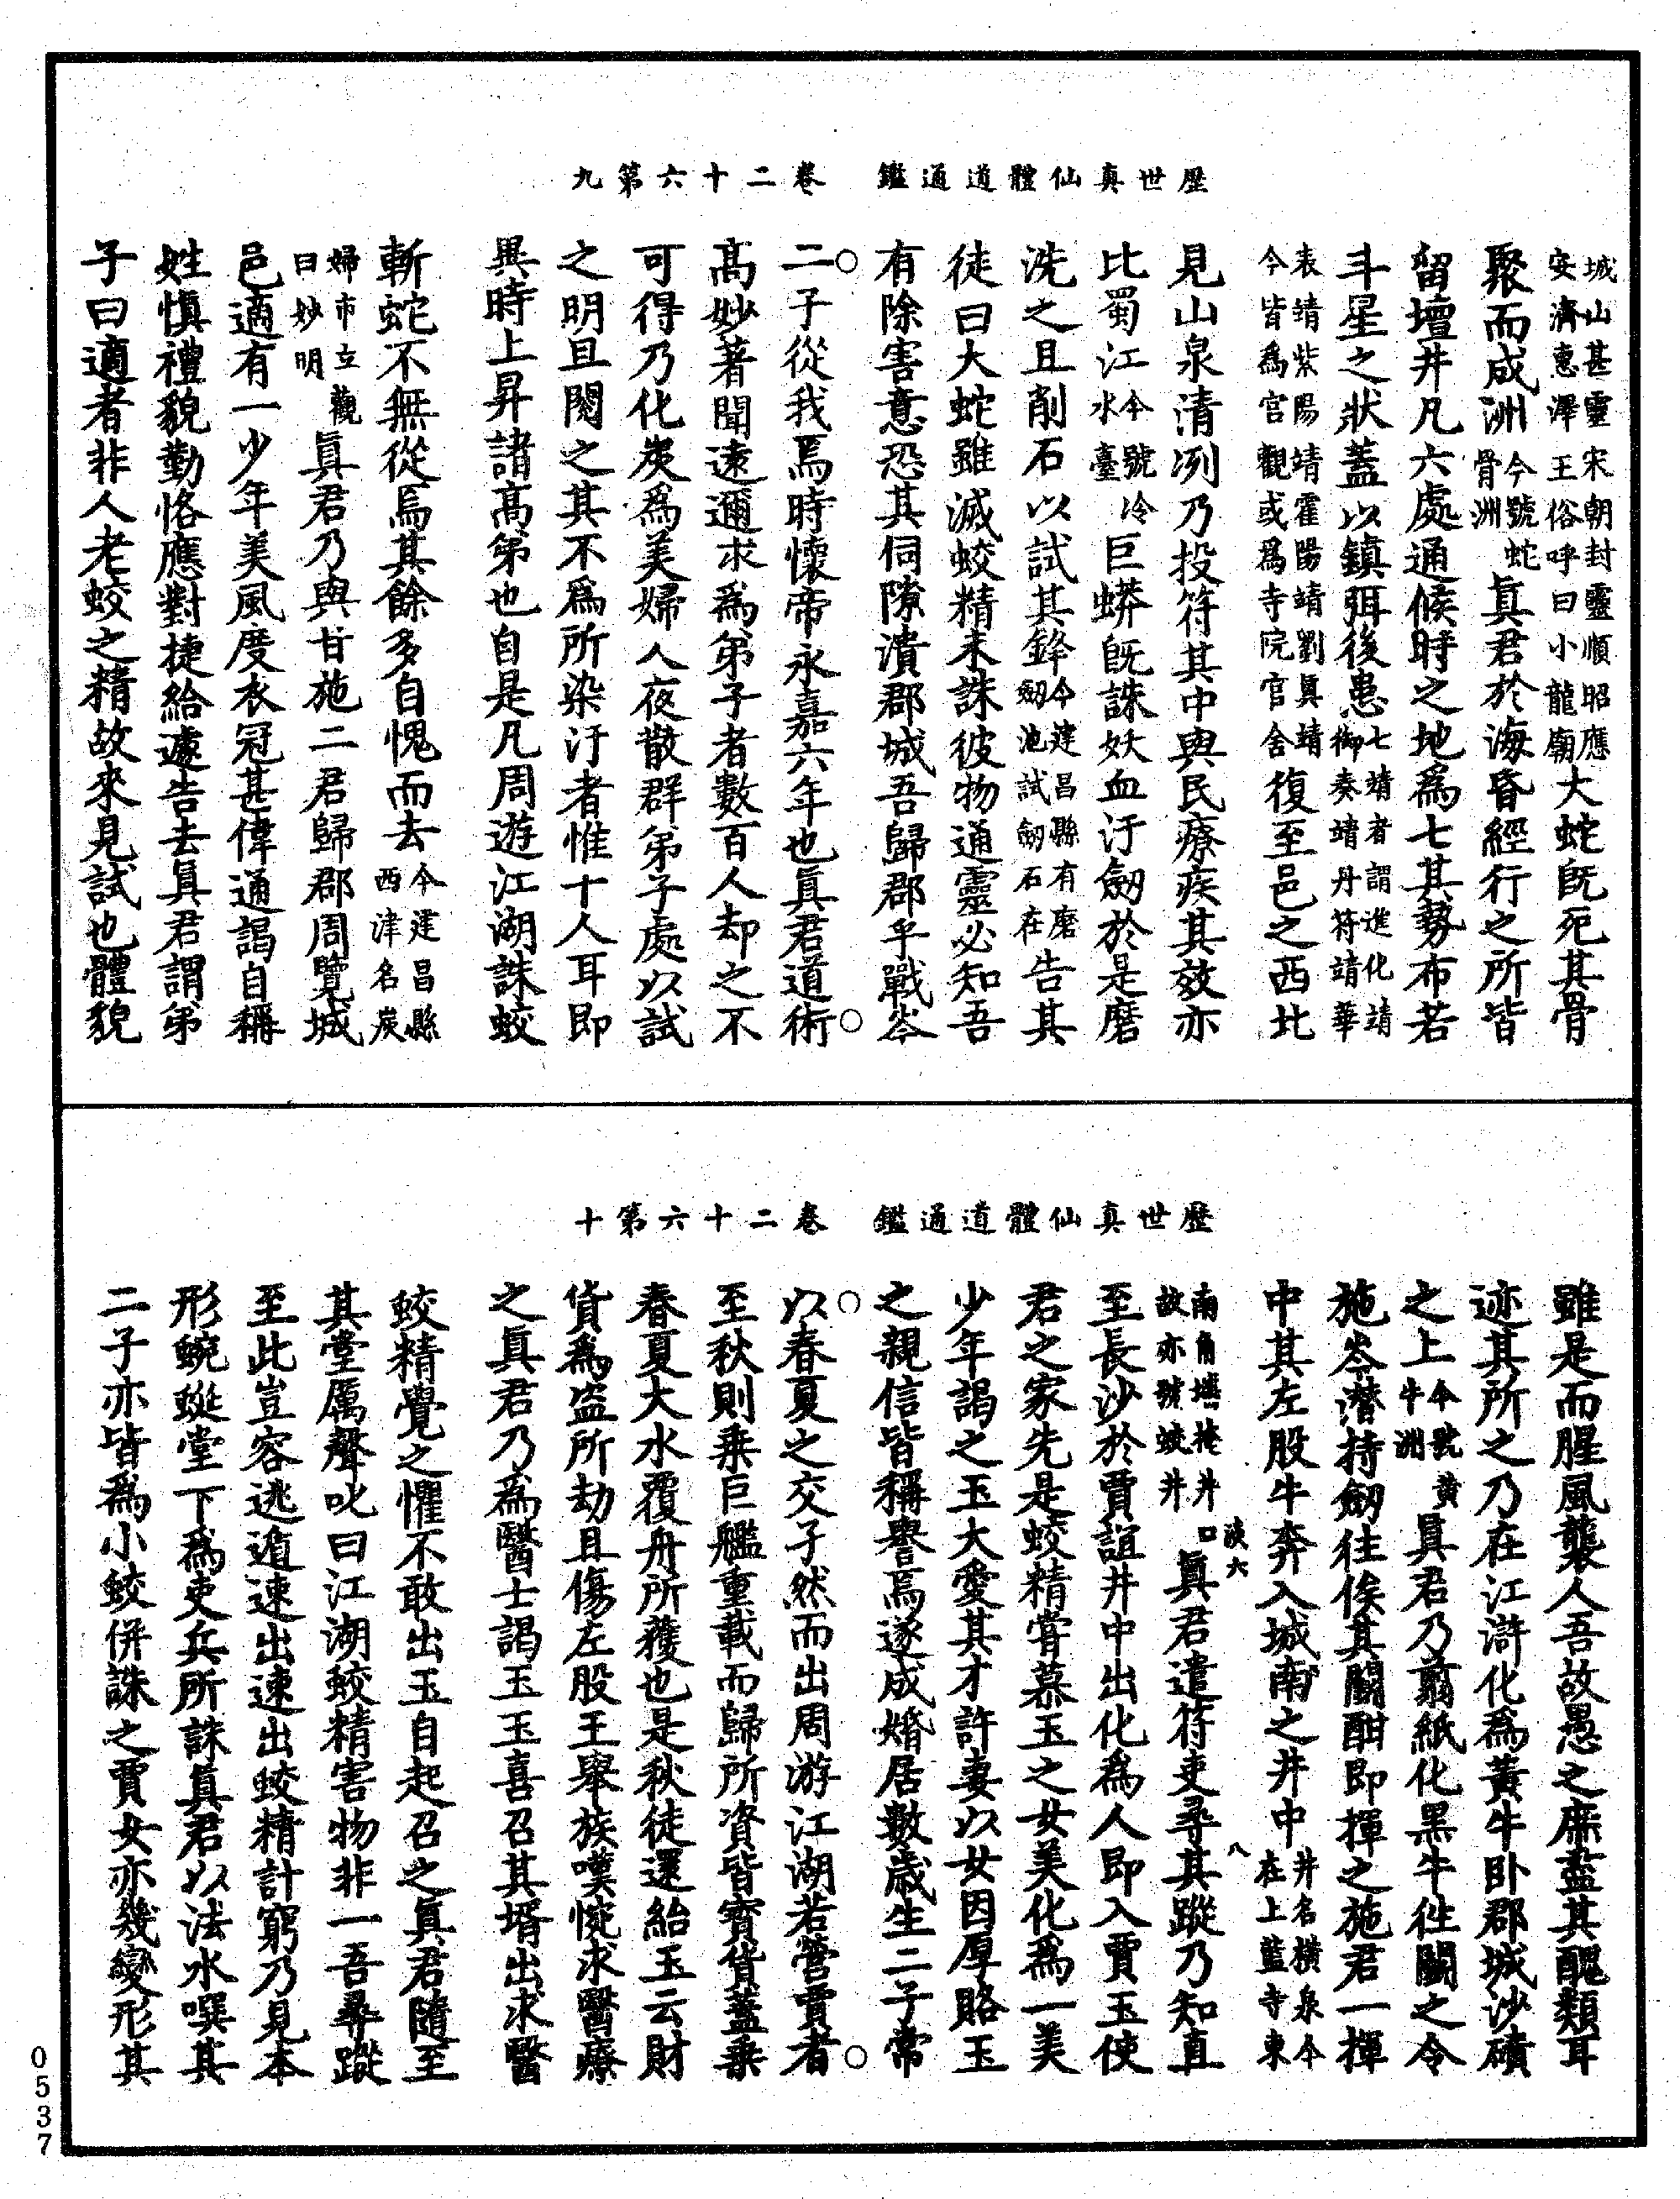 歷世真仙體道通鑑　卷二十六第九
城山甚靈宋朝封靈順昭應
安濟惠澤王俗呼曰小龍廟大蛇旣死其骨
聚而成洲今號蛇骨洲真君於海昏經行之所皆
留壇井凡六處通候時之地爲七其勢布若
斗星之狀蓋以鎮弭後患七靖者謂進化靖
御奏靖丹符靖華
表靖紫陽靖霍陽靖劉真靖
今皆爲官觀或爲寺院官舍復至邑之西北
見山泉清冽乃投符其中與民療疾其效亦
比蜀江今號冷水臺巨蟒旣誅妖血汙劒於是磨
洗之且削石以試其鋒今建昌縣有磨
劒池試劒石在告其
徒曰大蛇雖滅蛟精未誅彼物通靈必知吾
有除害意恐其伺隙潰郡城吾歸郡乎戰岑
二子從我焉時懷帝永嘉六年也真君道術
高妙著聞遠邇求爲弟子者數百人却之不
可得乃化炭爲美婦人夜散群弟子處以試
之明旦閱之其不爲所染汙者惟十人耳即
異時上昇諸高弟也自是凡周遊江湖誅蛟
斬蛇不無從焉其餘多自愧而去今建昌縣
西津名炭
婦市立觀
曰妙明真君乃與甘施二君歸郡周覽城
邑適有一少年美風度衣冠甚偉通謁自稱
姓慎禮貌勤恪應對捷給遽告去真君謂弟
子曰適者非人老蛟之精故來見試也體貌
歷世真仙體道通鑑　卷二十六第十
雖是而腥風襲人吾故愚之庶盡其醜類耳
迹其所之乃在江滸化爲黃牛卧郡城沙磧
之上今號黃牛洲真君乃剪紙化黑牛往鬭之令
施岑潛持劒往俟其鬭酣即揮之施君一揮
中其左股牛奔入城南之井中井名橫泉今
在上藍寺東
南角填掩井口
故亦號蛟井
淡六
八
真君遣符吏尋其蹤乃知直
至長沙於賈誼井中出化爲人即入賈玉使
君之家先是蛟精嘗慕玉之女美化爲一美
少年謁之玉大愛其才許妻以女因厚賂玉
之親信皆稱譽焉遂成婚居數歲生二子常
以春夏之交孑然而出周游江湖若營賈者
至秋則乘巨艦重載而歸所資皆寶貨蓋乘
春夏大水覆舟所獲也是秋徒還紿玉云財
貨爲盜所劫且傷左股玉舉族嘆惋求醫療
之真君乃爲醫士謁玉玉喜召其壻出求醫
蛟精覺之懼不敢出玉自起召之真君隨至
其堂厲聲叱曰江湖蛟精害物非一吾尋蹤
至此豈容逃遁速出速出蛟精計窮乃見本
形蜿蜒堂下爲吏兵所誅真君以法水噀其
二子亦皆爲小蛟併誅之賈女亦幾變形其
0537